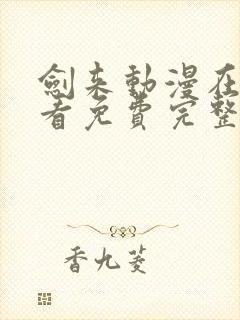 劍来動漫在
看免費完整
香九菱